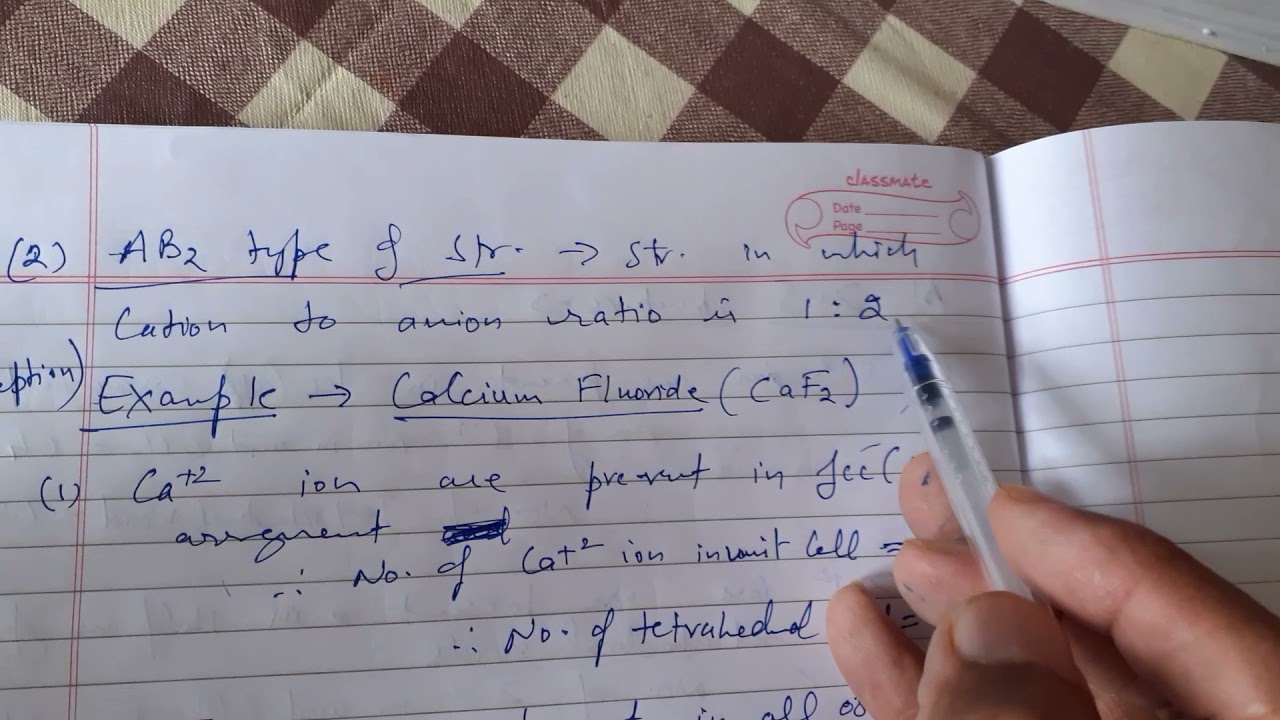 classmate
Date
Page
(2) AB2 type of str. → str. in which
Cation to anion ratio is 1:2
eption)
Example → Calcium Fluoride (CaF2)
(1) Ca+2 ion are present in fcc (
arrangement
∴ No. of Ca+2 ion in unit cell =
∴ No. of tetrahedral =
in all